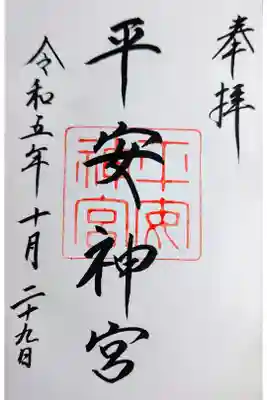 奉拝
平安神宮
平安神宮
令和五年十月二十九日